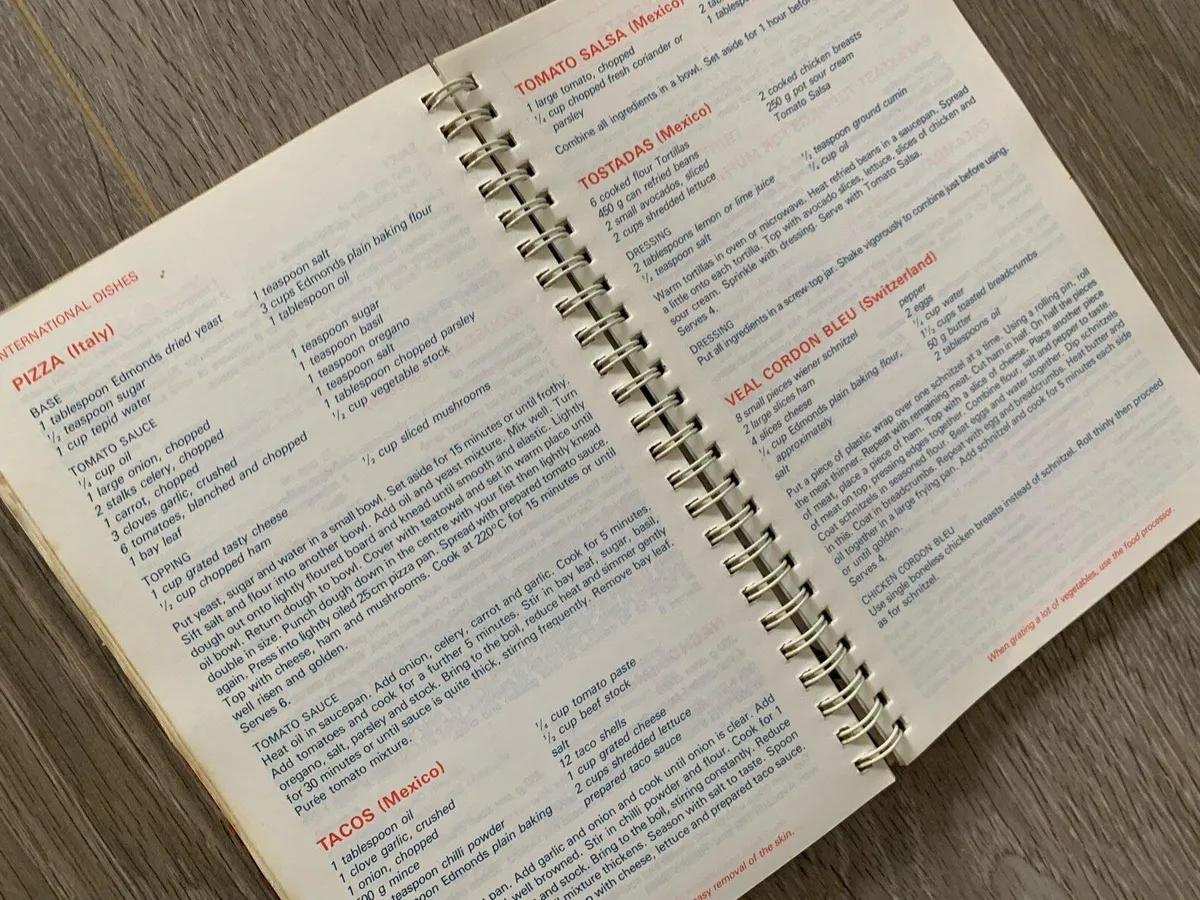 INTERNATIONAL DISHES
PIZZA (Italy)
BASE
1 tablespoon Edmonds dried yeast
½ teaspoon sugar
1 cup tepid water
1 teaspoon salt
3 cups Edmonds plain baking flour
1 tablespoon oil
TOMATO SAUCE
¼ cup oil
1 large onion, chopped
2 stalks celery, chopped
1 carrot, chopped
3 cloves garlic, crushed
6 tomatoes, blanched and chopped
1 bay leaf
1 teaspoon sugar
1 teaspoon basil
1 teaspoon oregano
1 teaspoon salt
1 tablespoon chopped parsley
½ cup vegetable stock
TOPPING
1 cup grated tasty cheese
½ cup chopped ham
½ cup sliced mushrooms
Put yeast, sugar and water in a small bowl. Set aside for 15 minutes or until frothy.
Sift salt and flour into another bowl. Add oil and yeast mixture. Mix well. Turn
dough out onto lightly floured board and knead until smooth and elastic. Lightly
oil bowl. Return dough to bowl. Cover with teatowel and set in warm place until
double in size. Punch dough down in the centre with your fist then lightly knead
again. Press into lightly oiled 25cm pizza pan. Spread with prepared tomato sauce.
Top with cheese, ham and mushrooms. Cook at 220°C for 15 minutes or until
well risen and golden.
Serves 6.
TOMATO SAUCE
Heat oil in saucepan. Add onion, celery, carrot and garlic. Cook for 5 minutes.
Add tomatoes and cook for a further 5 minutes. Stir in bay leaf, sugar, basil,
oregano, salt, parsley and stock. Bring to the boil, reduce heat and simmer gently
for 30 minutes or until sauce is quite thick, stirring frequently. Remove bay leaf.
Purée tomato mixture.
TACOS (Mexico)
1 tablespoon oil
1 clove garlic, crushed
1 onion, chopped
00 g mince
teaspoon chilli powder
poon Edmonds plain baking
¼ cup tomato paste
½ cup beef stock
salt
12 taco shells
1 cup grated cheese
2 cups shredded lettuce
prepared taco sauce
pan. Add garlic and onion and cook until onion is clear. Add
well browned. Stir in chilli powder and flour. Cook for 1
and stock. Bring to the boil, stirring constantly. Reduce
mixture thickens. Season with salt to taste. Spoon
with cheese, lettuce and prepared taco sauce.
easy removal of the skin.
TOMATO SALSA (Mexico)
1 large tomato, chopped
¼ cup chopped fresh coriander or
parsley
2
1
Combine all ingredients in a bowl. Set aside for 1 hour
TOSTADAS (Mexico)
6 cooked flour Tortillas
450 g can refried beans
2 small avocados, sliced
2 cups shredded lettuce
2 cooked chicken breasts
250 g pot sour cream
Tomato Salsa
DRESSING
2 tablespoons lemon or lime juice
½ teaspoon salt
½ teaspoon ground cumin
¼ cup oil
Warm tortillas in oven or microwave. Heat refried beans in a saucepan. Spread
a little onto each tortilla. Top with avocado slices, lettuce, slices of chicken and
sour cream. Sprinkle with dressing. Serve with Tomato Salsa.
Serves 4.
DRESSING
Put all ingredients in a screw-top jar. Shake vigorously to combine just before using.
VEAL CORDON BLEU (Switzerland)
8 small pieces wiener schnitzel
2 large slices ham
4 slices cheese
¼ cup Edmonds plain baking flour,
approximately
salt
pepper
2 eggs
¼ cup water
1½ cups toasted breadcrumbs
50 g butter
2 tablespoons oil
Put a piece of plastic wrap over one schnitzel at a time. Using a rolling pin, roll
the meat thinner. Repeat with remaining meat. Cut ham in half. On half the pieces
of meat, place a piece of ham. Top with a slice of cheese. Place another piece
of meat on top, pressing edges together. Combine flour, salt and pepper to taste.
Coat schnitzels in seasoned flour. Beat eggs and water together. Dip schnitzels
in this. Coat in breadcrumbs. Repeat with egg and breadcrumbs. Heat butter and
oil together in a large frying pan. Add schnitzel and cook for 5 minutes each side
or until golden.
Serves 4.
CHICKEN CORDON BLEU
Use single boneless chicken breasts instead of schnitzel. Roll thinly then proceed
as for schnitzel.
When grating a lot of vegetables, use the food processor.